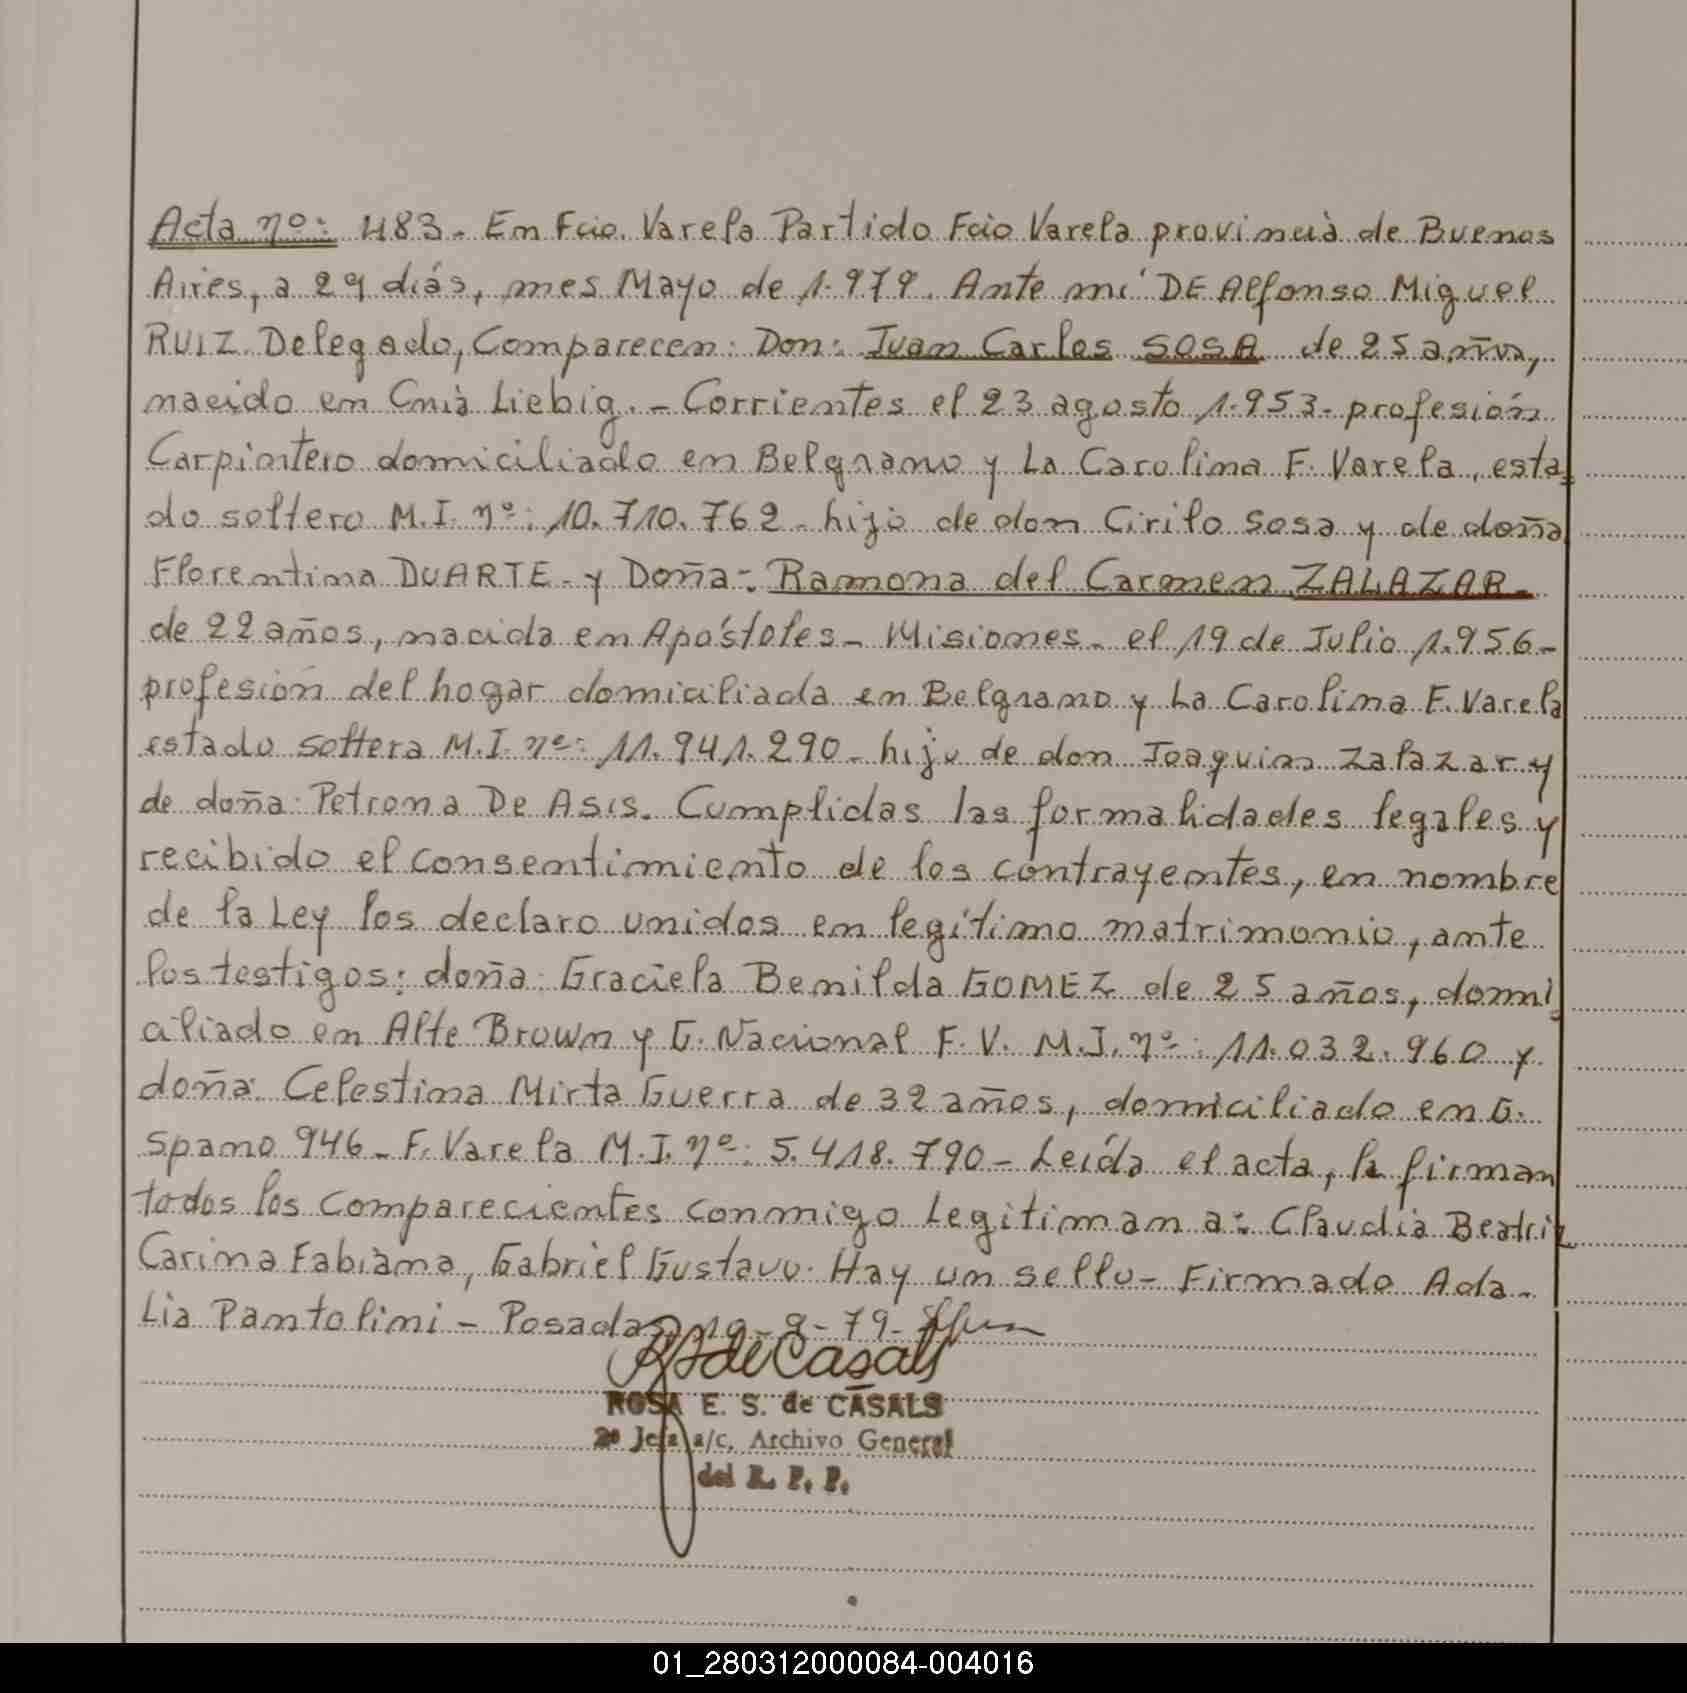 Acta nº: 483. En Fcio. Varela Partido Fcio Varela provincia de Buenos
Aires, a 29 días, mes Mayo de 1.979. Ante mí DE Alfonso Miguel
RUIZ Delegado, Comparecen: Don: Juan Carlos SOSA de 25 años,
nacido en Cnia Liebig. - Corrientes el 23 agosto 1.953- profesión
Carpintero domiciliado en Belgrano y La Carolina F. Varela, esta=
do soltero M.I. nº: 10.710.762- hijo de don Cirilo Sosa y de doña
Florentina DUARTE- y Doña: Ramona del Carmen ZALAZAR-
de 22 años, nacida en Apóstoles- Misiones- el 19 de Julio 1.956-
profesión del hogar domiciliada en Belgrano y La Carolina F. Varela
estado soltera M.I. nº: 11.941.290- hija de don Joaquin Zalazar y
de doña: Petrona De Asis. Cumplidas las formalidades legales y
recibido el consentimiento de los contrayentes, en nombre
de la Ley los declaro unidos en legítimo matrimonio, ante
los testigos: doña: Graciela Benilda GOMEZ de 25 años, domi=
ciliado en Alte Brown y G. Nacional F. V. M.I. nº: 11.032.960 y
doña: Celestina Mirta Guerra de 32 años, domiciliado en G.
Spano 946- F. Varela M.I. nº: 5.418.790- Leída el acta, la firman
todos los Comparecientes conmigo Legitiman a: Claudia Beatriz
Carina Fabiana, Gabriel Gustavo. Hay un sello- Firmado Ada-
Lia Pantolini- Posadas 10-9-79-
RS de Casals
ROSA E. S. de CASALS
2ª Jefa a/c, Archivo General
del R. P. P.
01_280312000084-004016